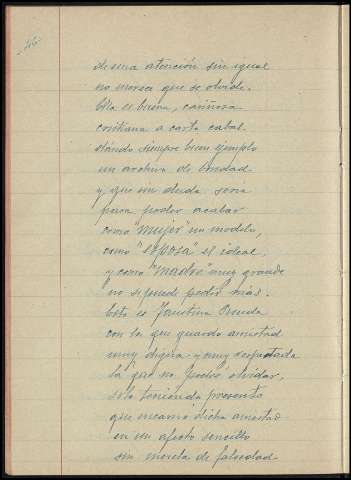 46
de una atención sin igual
no merece que se olvide.
Ella es buena, cariñosa
cristiana a carta cabal
dando siempre buen ejemplo
un archivo de bondad
y que sin duda seria
para poder acabar
como "mujer" un modelo,
como "esposa" el ideal,
y como "madre" muy grande
no se puede pedir más.
Esta es Faustina
con la que guardo amistad
muy digna y muy respetada
la que no podré olvidar,
solo teniendo presente
que encarna dicha amistad
en un afecto sencillo
sin mezcla de falsedad